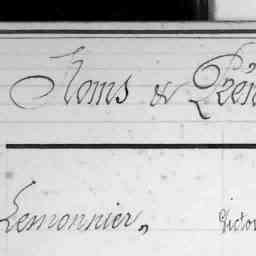 Noms & Prén
Lemonnier, Victo